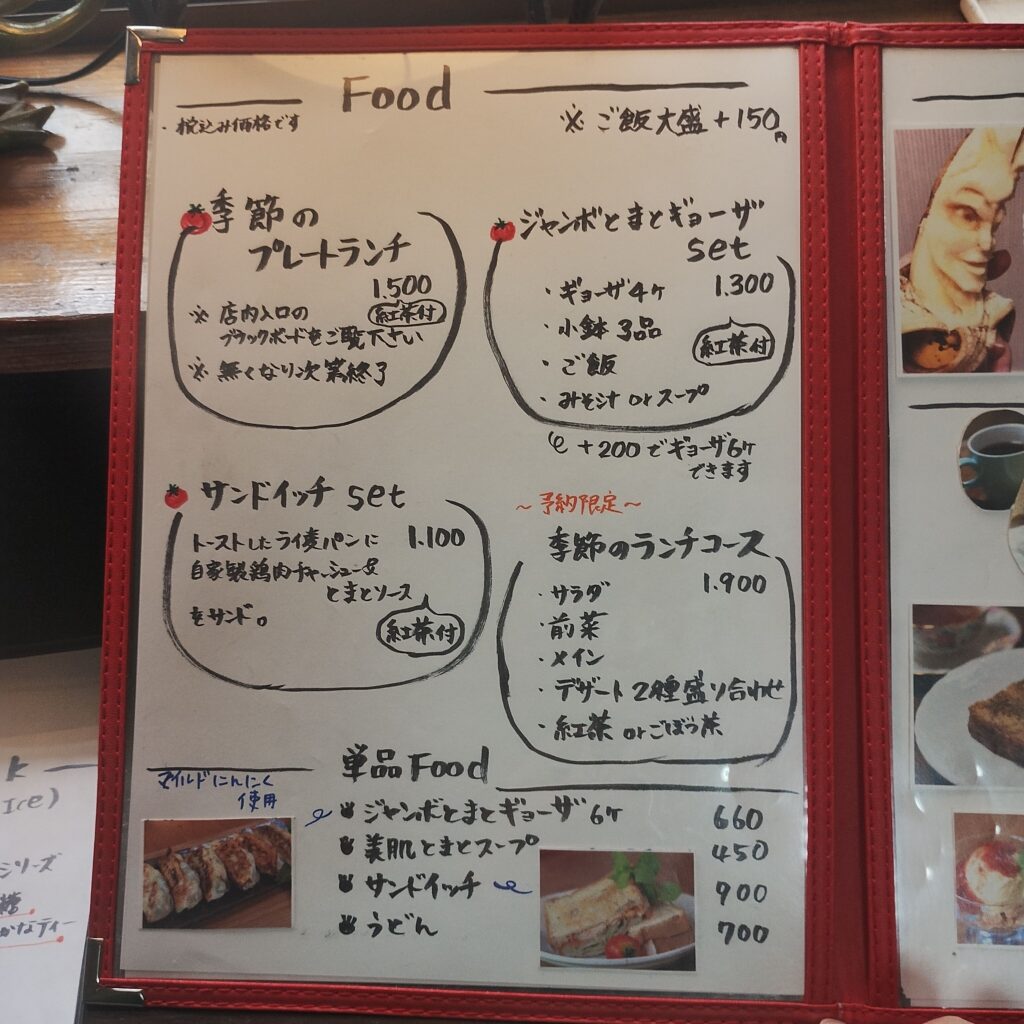 Food
・税込み価格です
※ ご飯大盛+150円
季節の
プレートランチ
1.500
紅茶付
※ 店内入口の
ブラックボードをご覧下さい
※ 無くなり次第終了
ジャンボとまとギョーザ
set
・ギョーザ4ヶ 1.300
・小鉢3品
紅茶付
・ご飯
・みそ汁 or スープ
+200でギョーザ6ヶ
できます
サンドイッチ set
トーストしたライ麦パンに 1.100
自家製鶏肉チャーシュー&
とまとソース
をサンド。
紅茶付
〜予約限定〜
季節のランチコース
1.900
・サラダ
・前菜
・メイン
・デザート2種盛り合わせ
・紅茶 or ごぼう茶
単品Food
マイルドにんにく
使用
ジャンボとまとギョーザ 6ヶ 660
美肌とまとスープ 450
サンドイッチ 900
うどん 700
k
Ice)
シリーズ
糖
かなティー